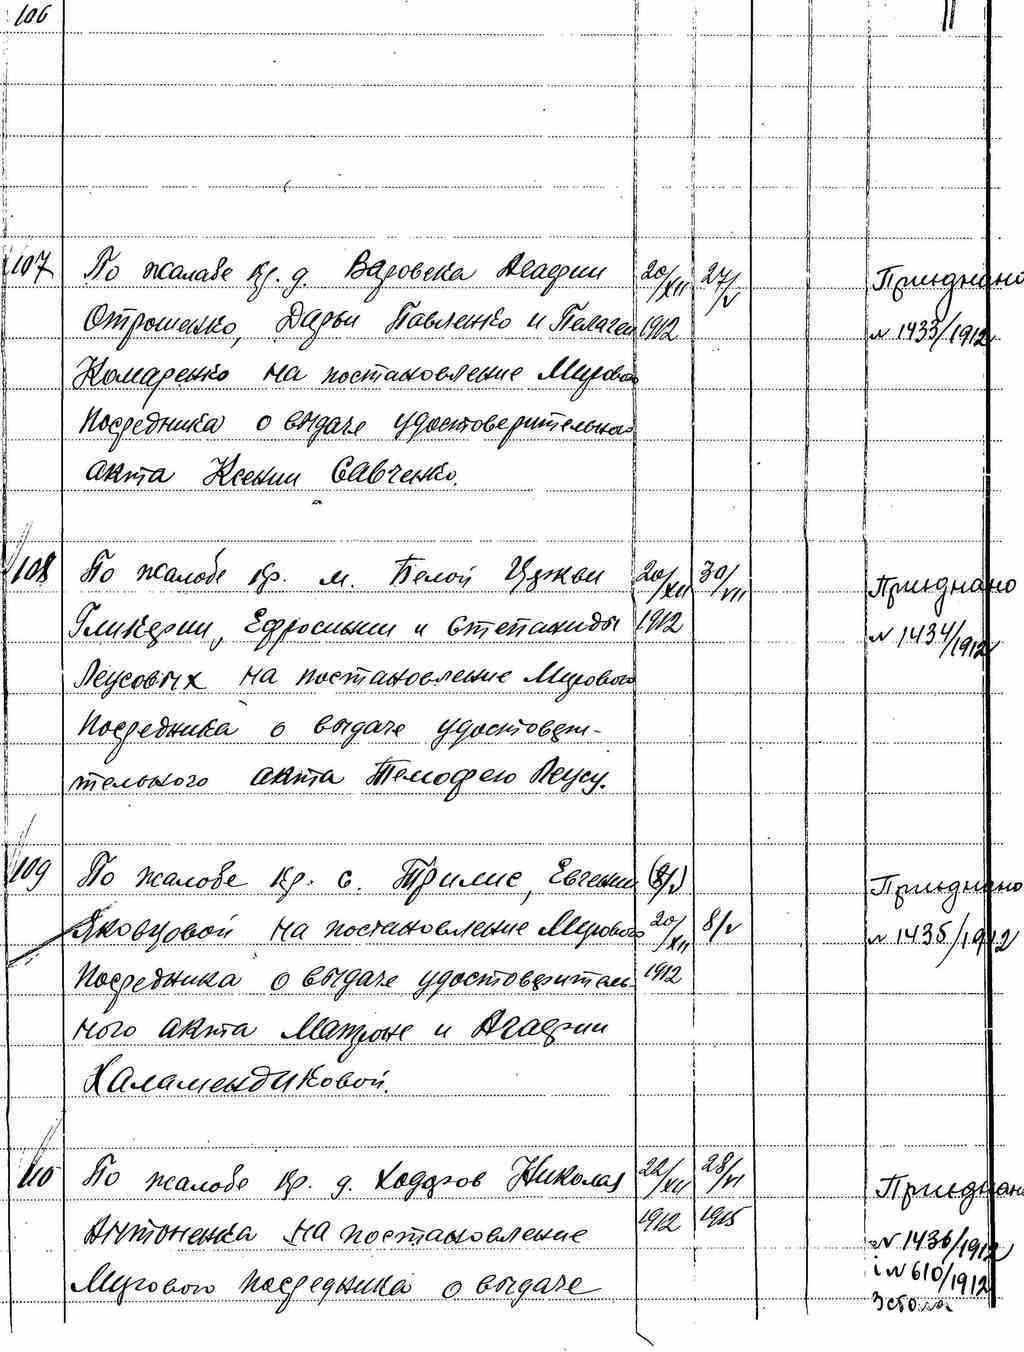 106
11
107 По жалобе кр. д. Вдровска Агафии 20/XII 27/V Приєднано
Отрошенко, Дарьи Павленко и Пелагеи 1912 № 1433/1912
Комаренко на постановление Мирового
Посредника о выдаче удостоверительного
акта Ксении Савченко.
108 По жалобе кр. м. Белой Церкви 20/XII 30/VII Приєднано
Гликерии, Ефросинии и Степаниды 1912 № 1434/1912
Леусовых на постановление Мирового
Посредника о выдаче удостовери-
тельного акта Темофею Леусу.
109 По жалобе кр. с. Трилис, Евгении (8/V) Приєднано
Яковцовой на постановление Мирового 20/XII 8/V № 1435/1912
Посредника о выдаче удостоверитель- 1912
ного акта Матроне и Агафии
Халамендиковой.
110 По жалобе кр. д. Ходоров Николая 22/XII 28/VI Приєднано
Антоненка на постановление 1912 1915 № 1436/1912
Мирового посредника о выдаче і № 610/1912
3 стола